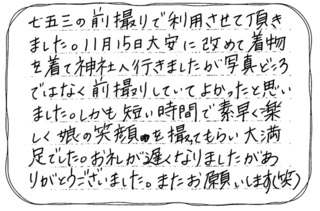 七五三の前撮りで利用させて頂き
ました。11月15日大安に改めて着物
を着て神社へ行きましたが写真どころ
ではなく前撮りしていてよかったと思い
ました。しかも短い時間で素早く楽
しく娘の笑顔を撮ってもらい大満
足でした。お礼が遅くなりましたがあ
りがとうございました。またお願いします(笑)